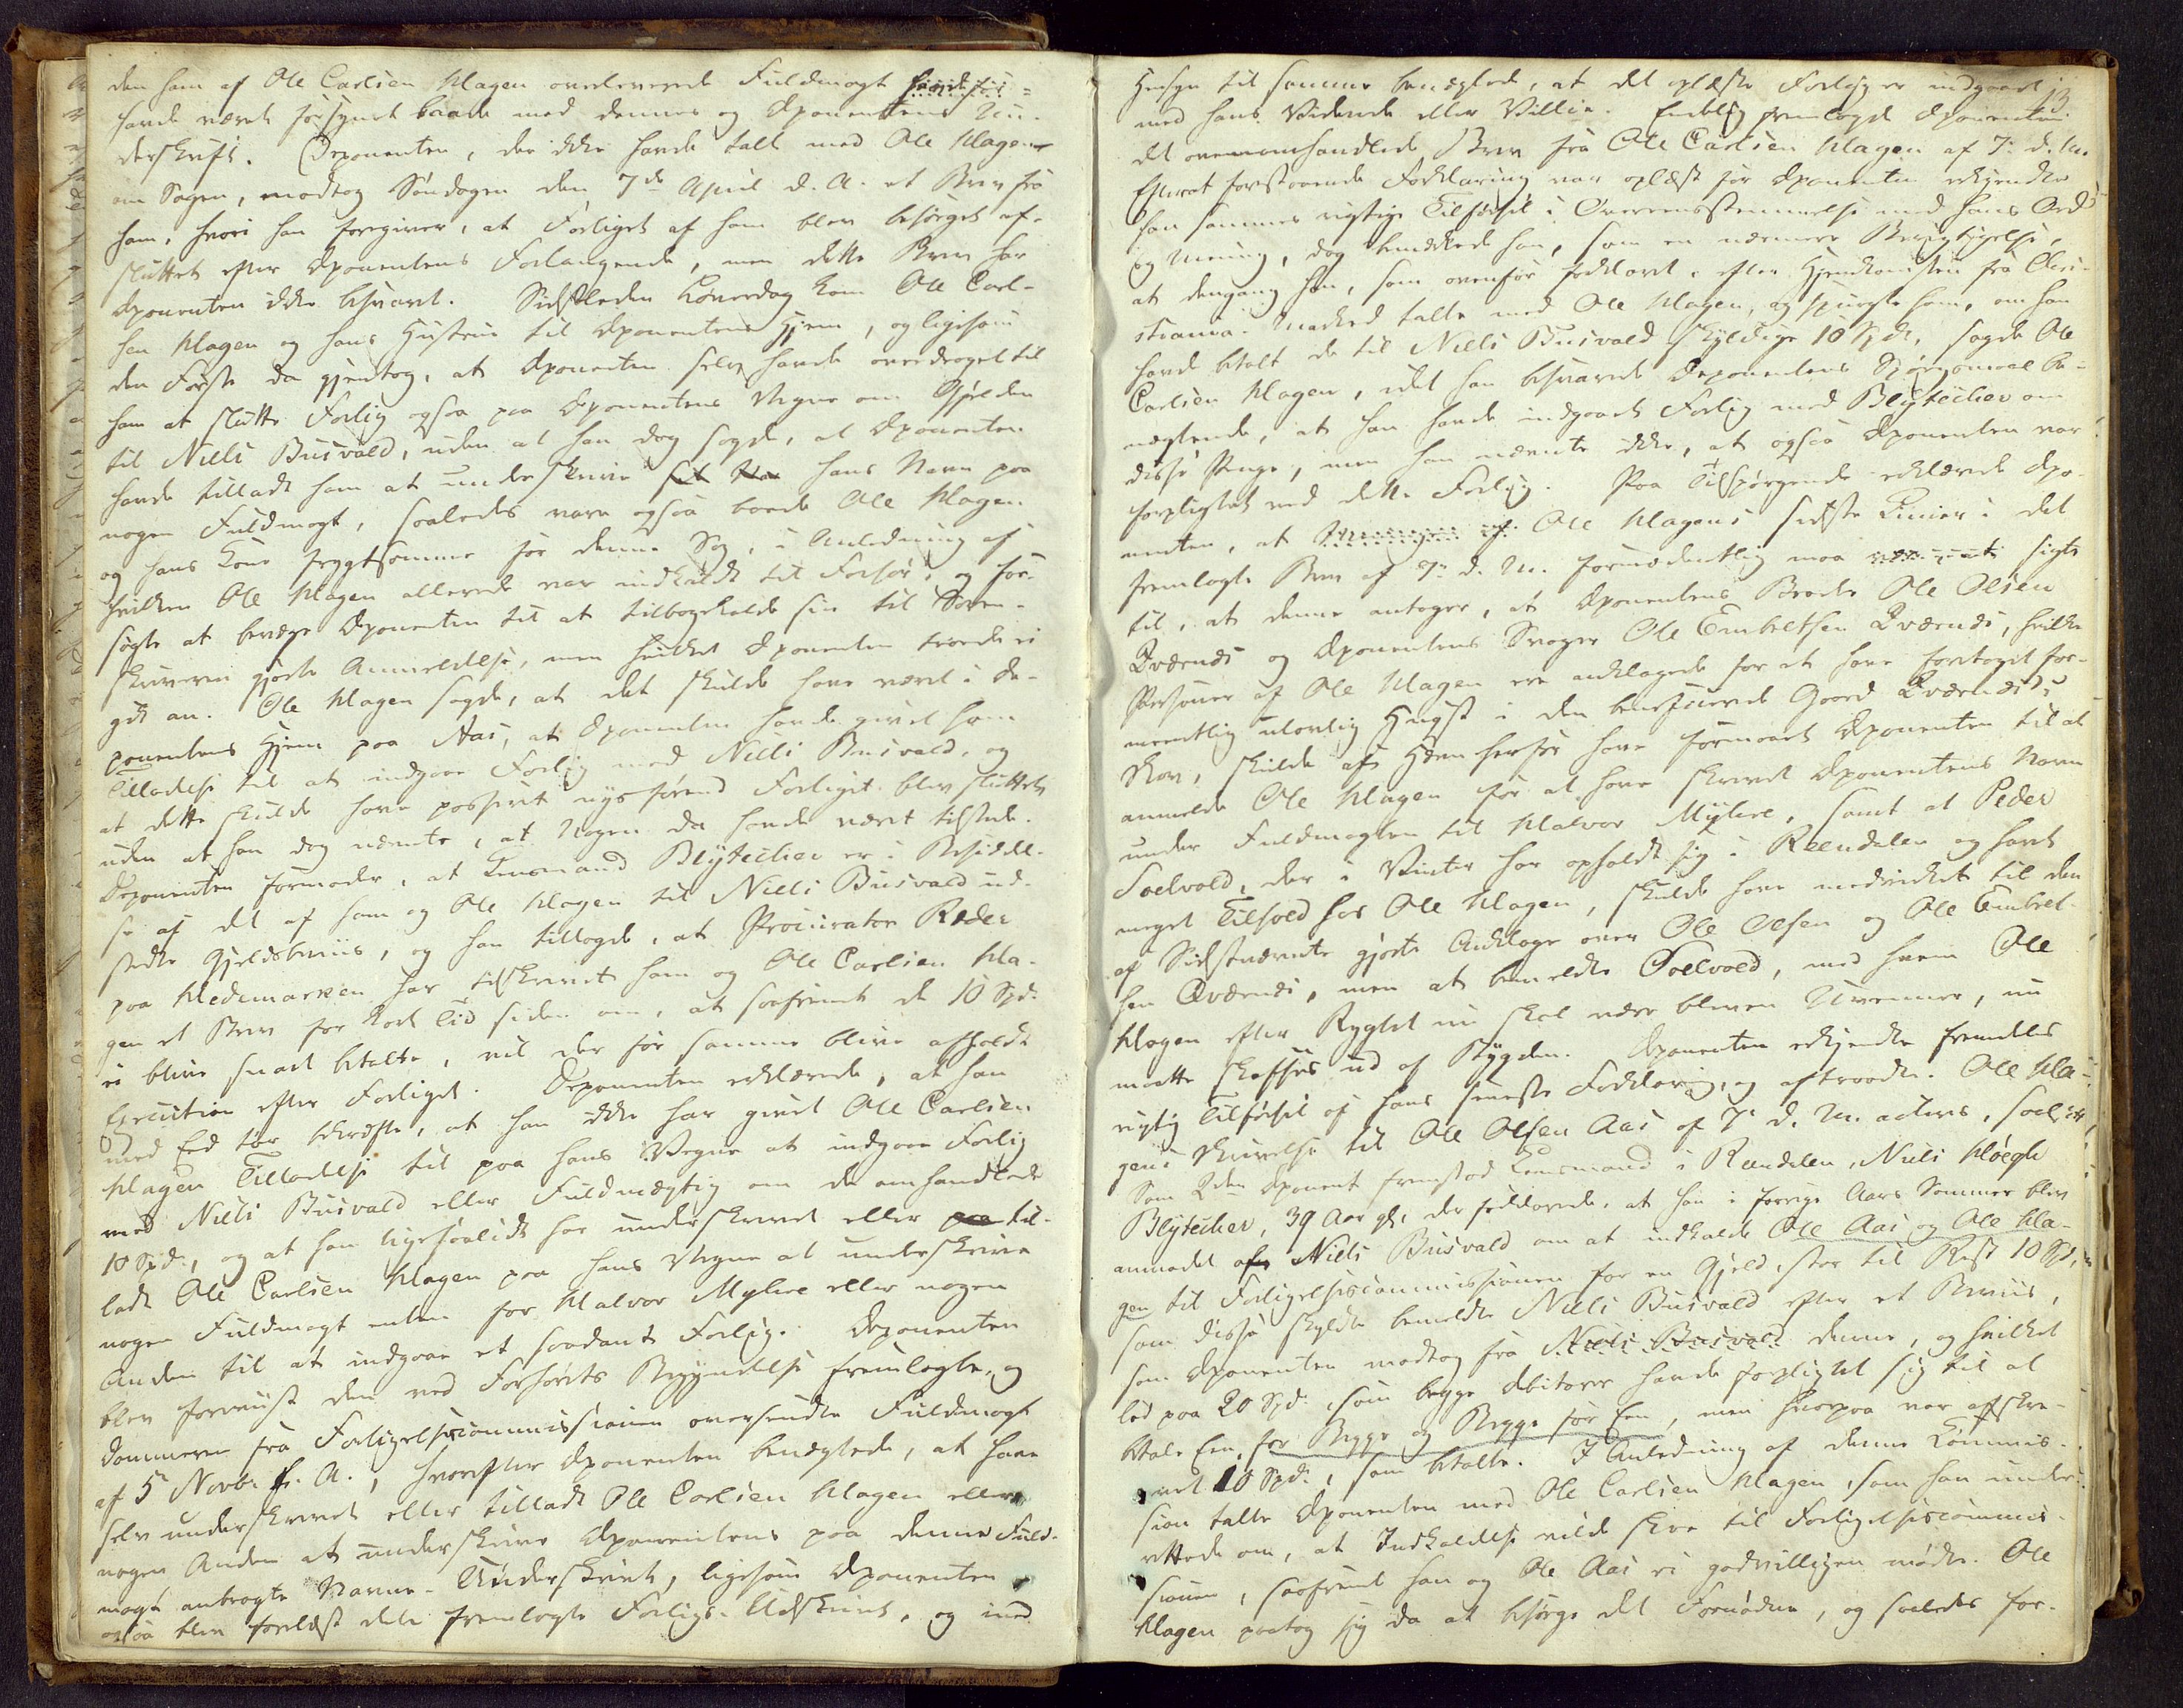 den ham af Ole Carlsen Klagen overleverede Fuldmagt
havde været forsynet baade med dennes og Deponentens Un-
derskrift. Deponenten, der ikke havde talt med Ole Klagen
om Sagen, modtog Søndagen den 7de April d. A. et Brev fra
ham, hvori han foregiver, at Forliget af ham blev besørget af-
sluttet efter Deponentens Forlangende, men dette Brev har
Deponenten ikke besvaret. Sidstleden Løverdag kom Ole Carl-
sen Klagen og hans Hustrue til Deponentens Hjem, og ligesom
den Første da gjentog, at Deponenten selv havde overdraget til
ham at slutte Forlig ogsaa paa Deponentens Vegne om Gjælden
til Niels Busvald, uden at han dog sagde, at Deponenten
havde tilladt ham at underskrive hans Navn paa
nogen Fuldmagt, saaledes vare ogsaa baade Ole Klagen
og hans Kone frygtsomme for denne Sag, i Anledning af
hvilken Ole Klagen allerede var indkaldt til Forhør, og for-
søgte at bevæge Deponenten til at tilbagekalde sin til Soren-
skriveren gjorte Anmeldelse, men hvilket Deponenten troede ei
gik an. Ole Klagen sagde, at det skulde have været i De-
ponentens Hjem paa Aas, at Deponenten havde givet ham
Tilladelse til at indgaae Forlig med Niels Busvald, og
at dette skulde have passeret nys førend Forliget blev sluttet,
uden at han dog nævnte, at Nogen da havde været tilstede.
Deponenten formoder, at Lensmand Blytecker er i Besiddel-
se af det af ham og Ole Klagen til Niels Busvald ud-
stedte Gjeldsbeviis, og han tillagde, at Procurator Reder
paa Hedemarken har tilskrevet ham og Ole Carlsen Kla-
gen et Brev for kort Tid siden om, at saafremt de 10 Spd.
ei blive snart betalte, vil der for samme blive afholdt
Execution efter Forliget. Deponenten erklærede, at han
med Eed tør bekræfte, at han ikke har givet Ole Carlsen
Klagen Tilladelse til paa hans Vegne at indgaae Forlig
med Niels Busvald eller Fuldmægtig om de omhandlede
10 Spd., og at han ligesaalidt har underskrevet eller til-
ladt Ole Carlsen Klagen paa hans Vegne at underskrive
nogen Fuldmagt enten for Halvor Myhre eller nogen
Anden til at indgaae et saadant Forlig. Deponenten
blev foreviist den ved Forhørets Begyndelse fremlagte, og
Dommeren fra Forligelsescommissionen oversendte Fuldmagt
af 5 Novbr. f. A., hvorefter Deponenten benægtede, at have
selv underskrevet eller tilladt Ole Carlsen Klagen eller
nogen Anden at underskrive Deponentens paa denne Fuld-
magt anbragte Navne-Underskrivt, ligesom Deponenten
ogsaa blev forelæst dette fremlagte Forligs-Udskrivt, og med
13
Hensyn til samme benægtede, at det oplæste Forlig er indgaaet
med hans Vidende eller Villie. Endelig fremlagde Deponenten
det ovenomhandlede Brev fra Ole Carlsen Klagen af 7. d. M.
Efterat forstaaende Forklaring var oplæst for Deponenten erkjendte
han sammes rigtige Tilførsel i Overeensstemmelse med hans Ord
og Mening, dog bemærkede han, som en nærmere Berigtigelse,
at dengang han, som ovenfor forklaret, efter Hjemkomsten fra Chri-
stiania-Marked talte med Ole Klagen, og spurgte ham, om han
havde betalt de til Niels Busvald skyldige 10 Spd., sagde Ole
Carlsen Klagen, idet han besvarede Deponentens Spørgsmaal be-
nægtende, at han havde indgaaet Forlig med Blytecker om
disse Penge, men han nævnte ikke, at ogsaa Deponenten var
forpligtet ved dette Forlig. Paa Tilspørgende erklærede Depo-
nenten, at Meningen af Ole Klagens sidste Linier i det
fremlagte Brev af 7. d. M. formodentlig maa sigte
til, at denne antager, at Deponentens Broder Ole Olsen
Qværnæs og Deponentens Svoger Ole Embretsen Qværnæs, hvilke
Personer af Ole Klagen ere anklagede for at have foretaget for-
meentlig ulovlig Hugst i den beneficerede Gaard Qværnæs's
Skov, skulde af Hevn herfor have formaaet Deponenten til at
anmelde Ole Klagen for at have skrevet Deponentens Navn
under Fuldmagten til Halvor Myhre, samt at Peder
Soelvold, der i Vinter har opholdt sig i Reendalen og havt
meget Tilhold hos Ole Klagen, skulde have medvirket til den
af Sidstnævnte gjorte Anklage over Ole Olsen og Ole Embret-
sen Qværnæs, men at bemeldte Soelvold, med hvem Ole
Klagen efter Rygtet nu skal være bleven Uvenner, nu
maatte skaffes ud af Bygden. Deponenten erkjendte fremdeles
rigtig Tilførsel af hans seneste Forklaring, og aftraadte. Ole Kla-
gens Skrivelse til Ole Olsen Aas af 7. d. M. acteres,
Som 2den Deponent fremstod Lensmand i Reendalen, Niels Høegh
Blytecker, 39 Aar gl., der forklarede, at han i forrige Aars Sommer blev
anmodet af Niels Busvald om at indkalde Ole Aas og Ole Kla-
gen til Forligelsescommissionen for en Gjeld, stor til Rest 10 Spd.,
som disse skyldte bemeldte Niels Busvald efter et Beviis,
som Deponenten modtog fra Niels Busvald denne, og hvilket
lød paa 20 Spd. som begge Debitorer havde forpligtet sig til at
betale Een for Begge og Begge for Een, men hvorpaa var afskre-
vet 10 Spd., som betalte. I Anledning af denne Commis-
sion talte Deponenten med Ole Carlsen Klagen, som han under-
rettede om, at Indkaldelse vilde skee til Forligelsescommis-
sionen, saafremt han og Ole Aas ei godvilligen mødte. Ole
Klagen paatog sig da at besørge det Fornødne, og saaledes for-